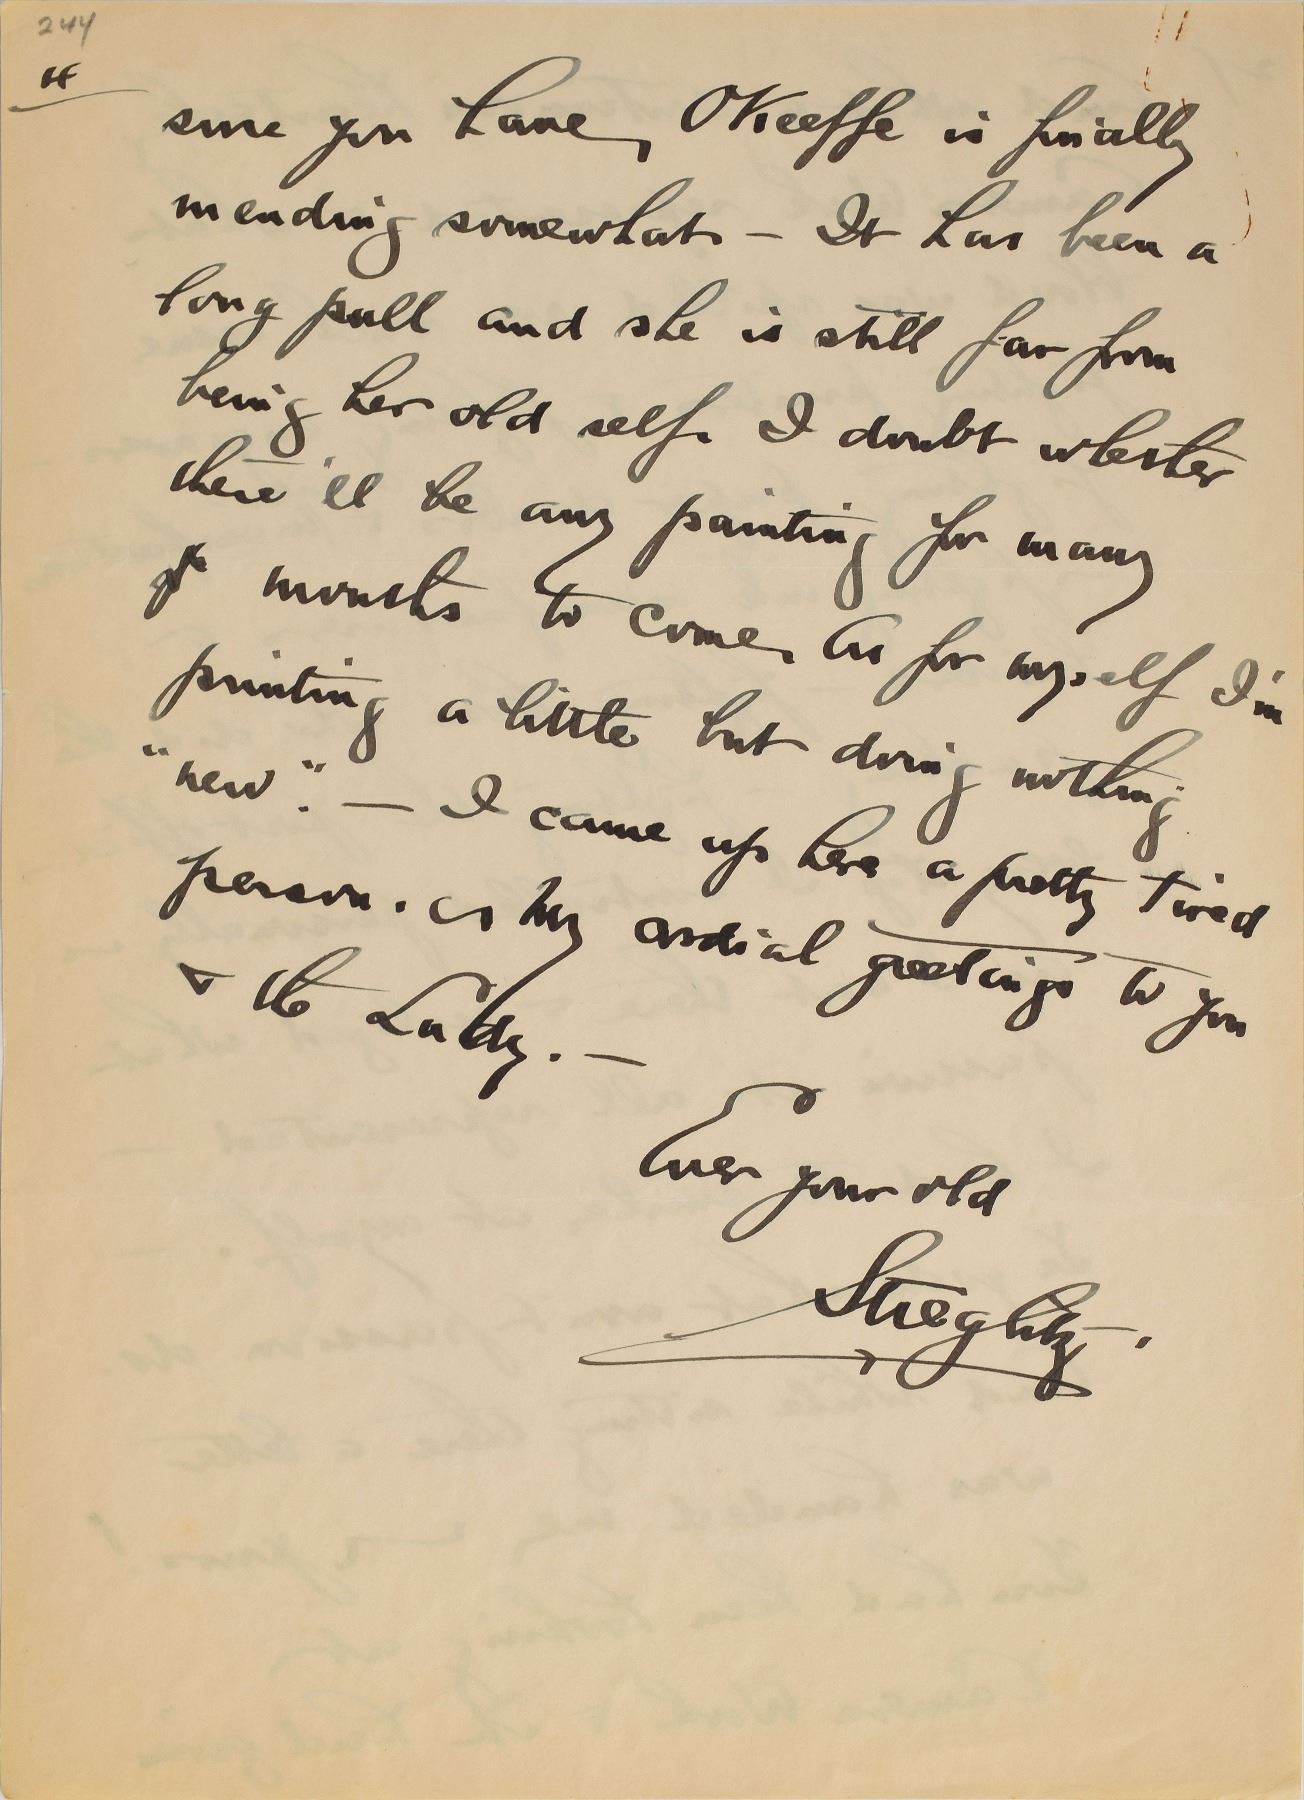 244
sure you have, OKeeffe is finally
mending somewhat — It has been a
long pull and she is still far from
being her old self. I doubt whether
there'll be any painting for many
months to come. As for myself I'm
printing a little but doing nothing
"new". — I came up here a pretty tired
person. My cordial greetings to you
& the Lady. —
Ever your old
Stieglitz.